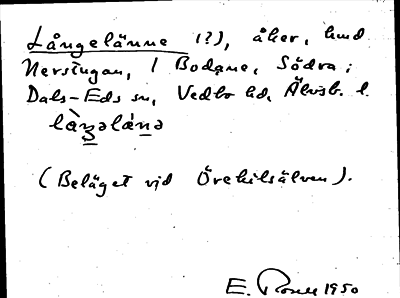 Långelänne (?), åker, hmd
Nerstugan, 1 Bodane, Södra;
Dals-Eds sn, Vedbo hd, Älvsb. l.
làŋəlánə
(Beläget vid Örekilsälven).
E. 1950